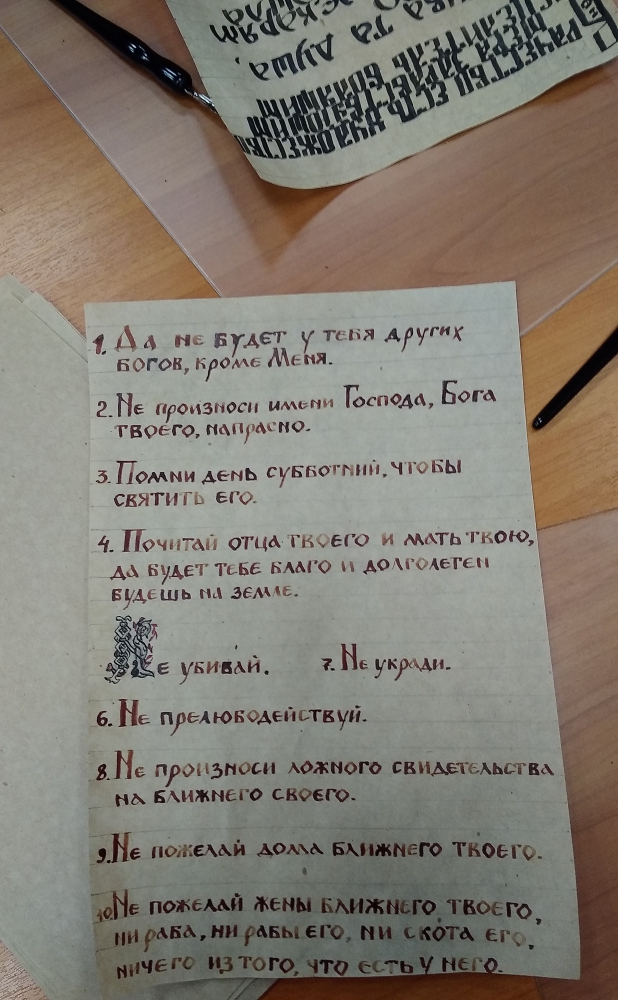 1. Да не будет у тебя других
богов, кроме Меня.
2. Не произноси имени Господа, Бога
твоего, напрасно.
3. Помни день субботний, чтобы
святить его.
4. Почитай отца твоего и мать твою,
да будет тебе благо и долголетен
будешь на земле.
Не убивай. 7. Не укради.
6. Не прелюбодействуй.
8. Не произноси ложного свидетельства
на ближнего своего.
9. Не пожелай дома ближнего твоего.
10. Не пожелай жены ближнего твоего,
ни раба, ни рабы его, ни скота его,
ничего из того, что есть у него.
та душа,